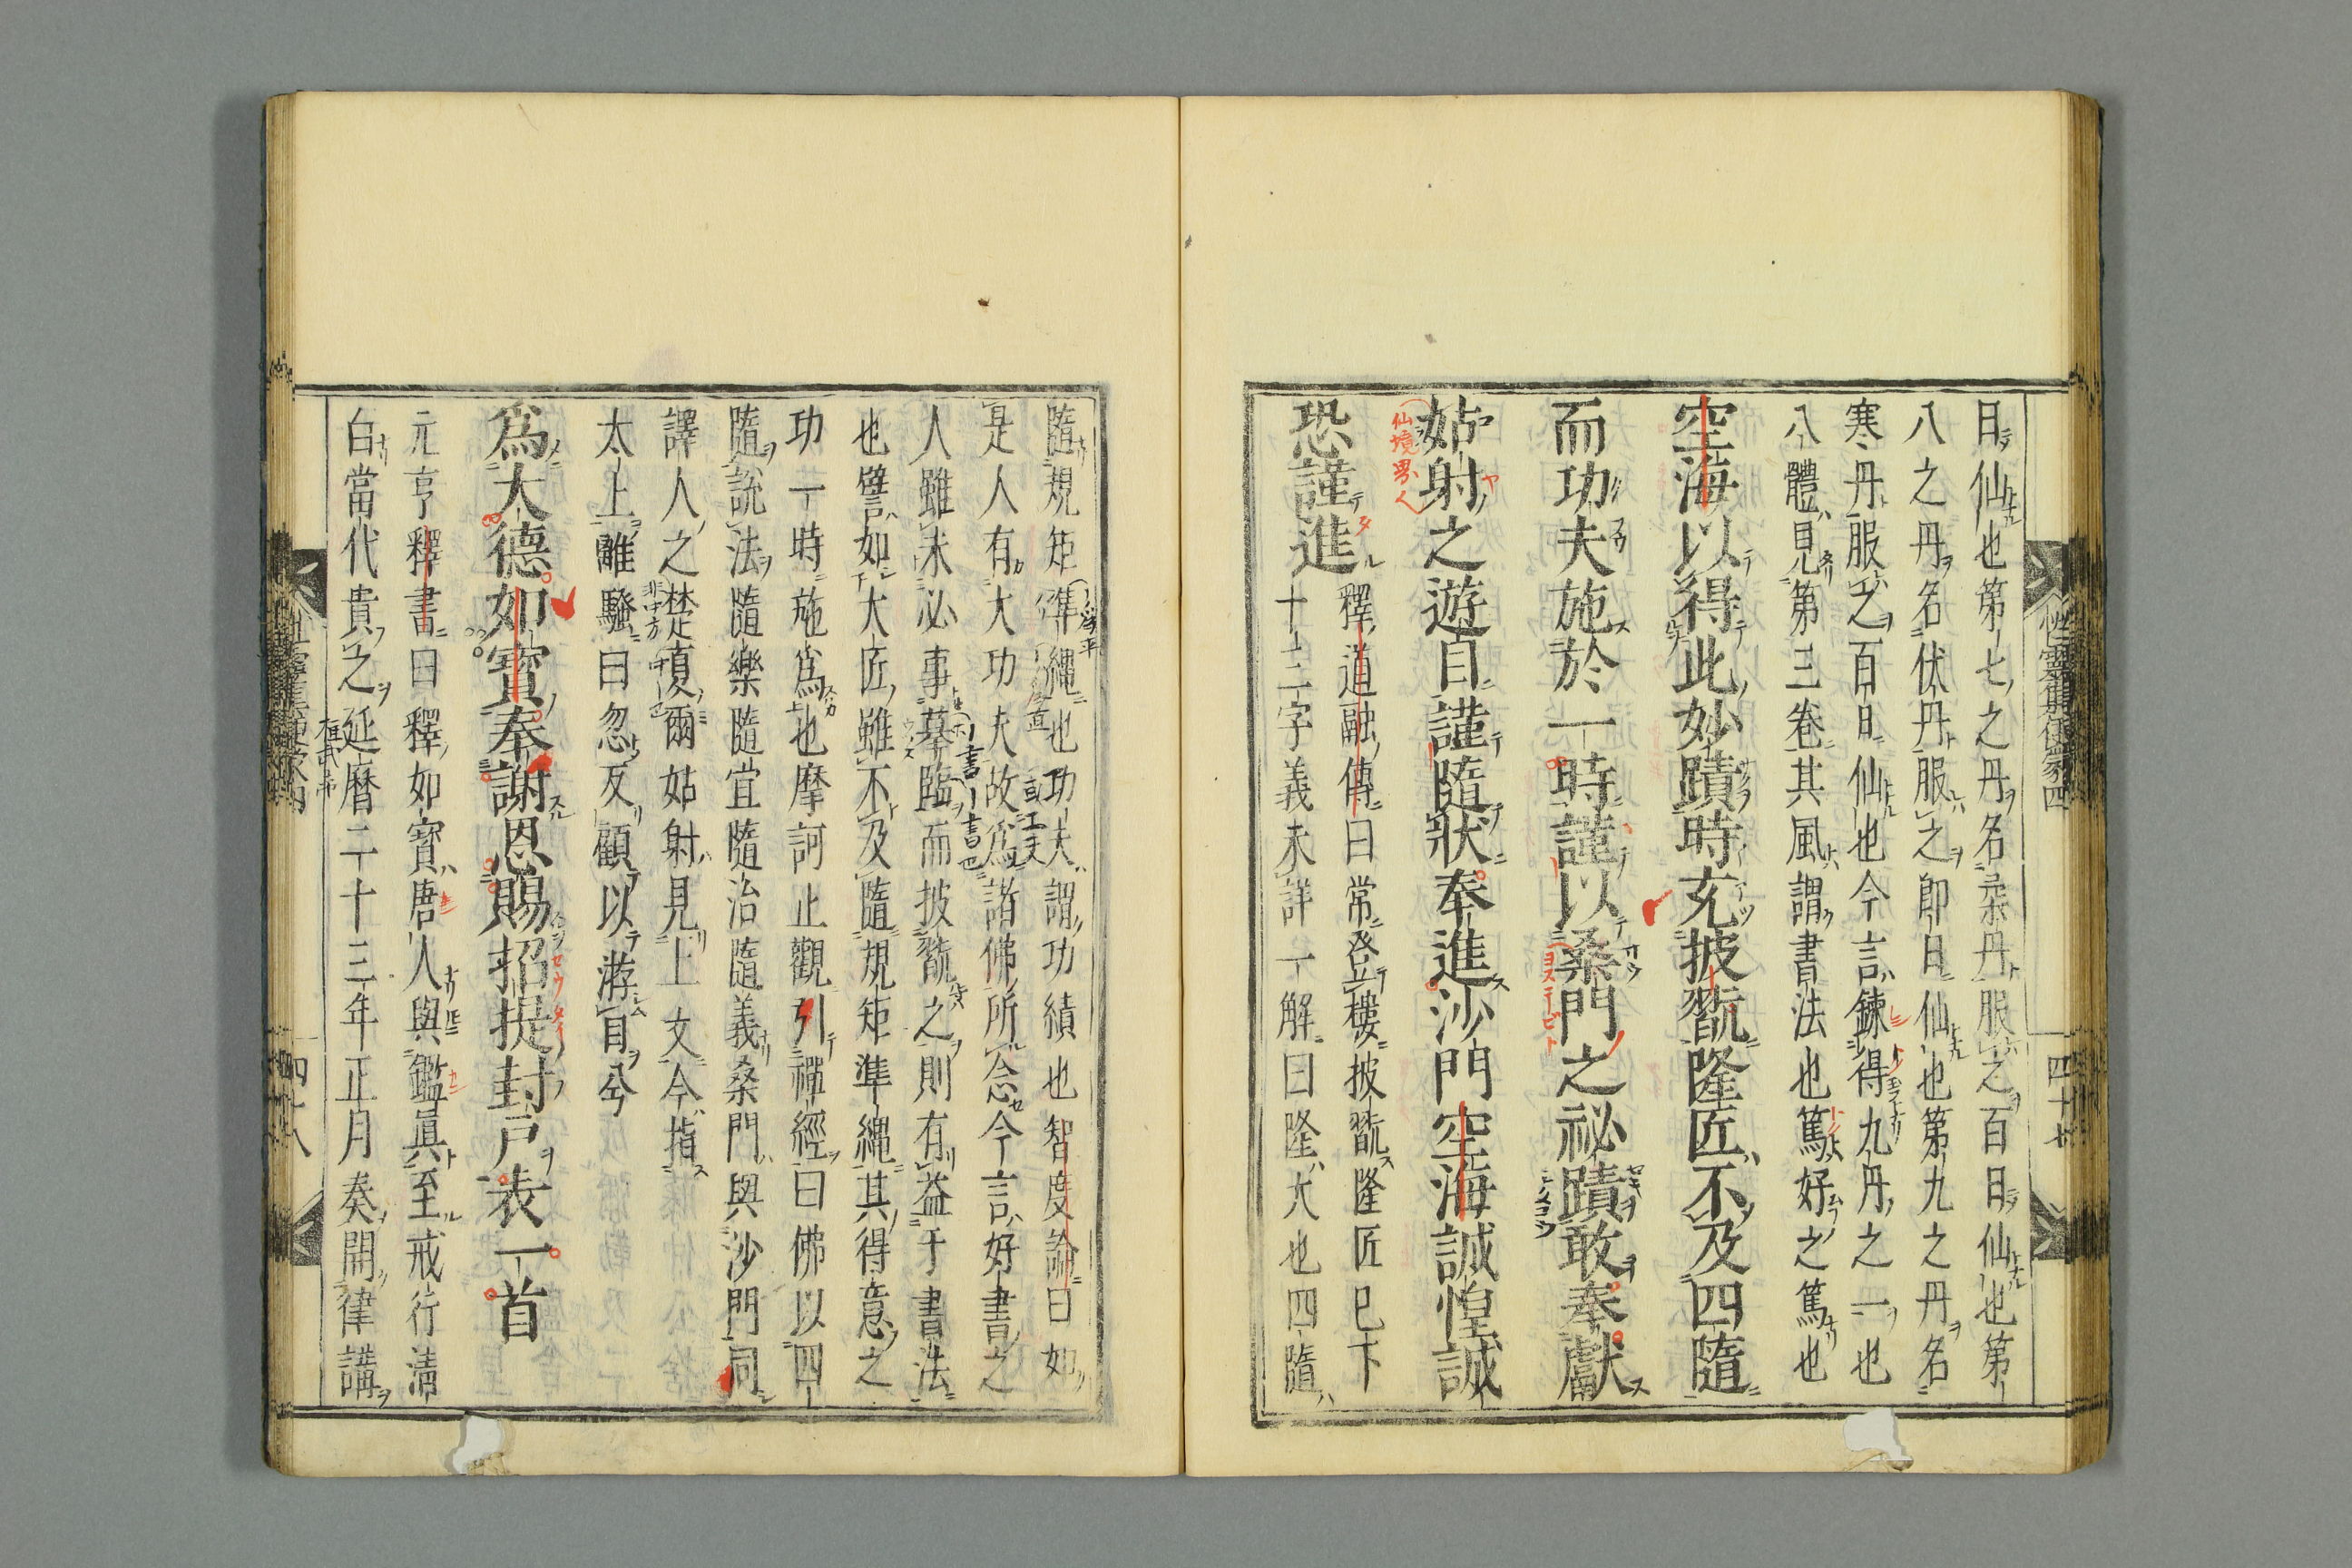 日仙也第七之丹名柔丹服之百日仙也第
八之丹名伏丹服之即日仙也第九之丹名
寒丹服之百日仙也今言鍊得九丹之一也
八體見第三卷其風謂書法也篤好之篤也
空海以得此妙蹟時充披翫隆匠不及四隨
而功夫施於一時謹以桑門之祕蹟敢奉獻
姑射之遊目謹隨狀奉進沙門空海誠惶誠
仙境界人
恐謹進
釋道融傳曰常登樓披翫隆匠已下
十二字義未詳一解曰隆大也四隨
性靈集便蒙四
四十七
隨規矩準繩也功夫謂功績也智度論曰如
是人有大功夫故為諸佛所念今言好書之
人雖未必事摹臨而披翫之則有益于書法
也譬如大匠雖不及隨規矩準繩其得意之
功一時施為也摩訶止觀引禪經曰佛以四
隨說法隨樂隨宜隨治隨義桑門與沙門同
譯人之楚夏爾姑射見上文今指
太上離騷曰忽反顧以游目兮
為大德如寶奉謝恩賜招提封戶表一首
元亨釋書曰釋如寶唐人與鑑眞至戒行清
白當代貴之延曆二十三年正月奏開律講
桓武帝
四十八